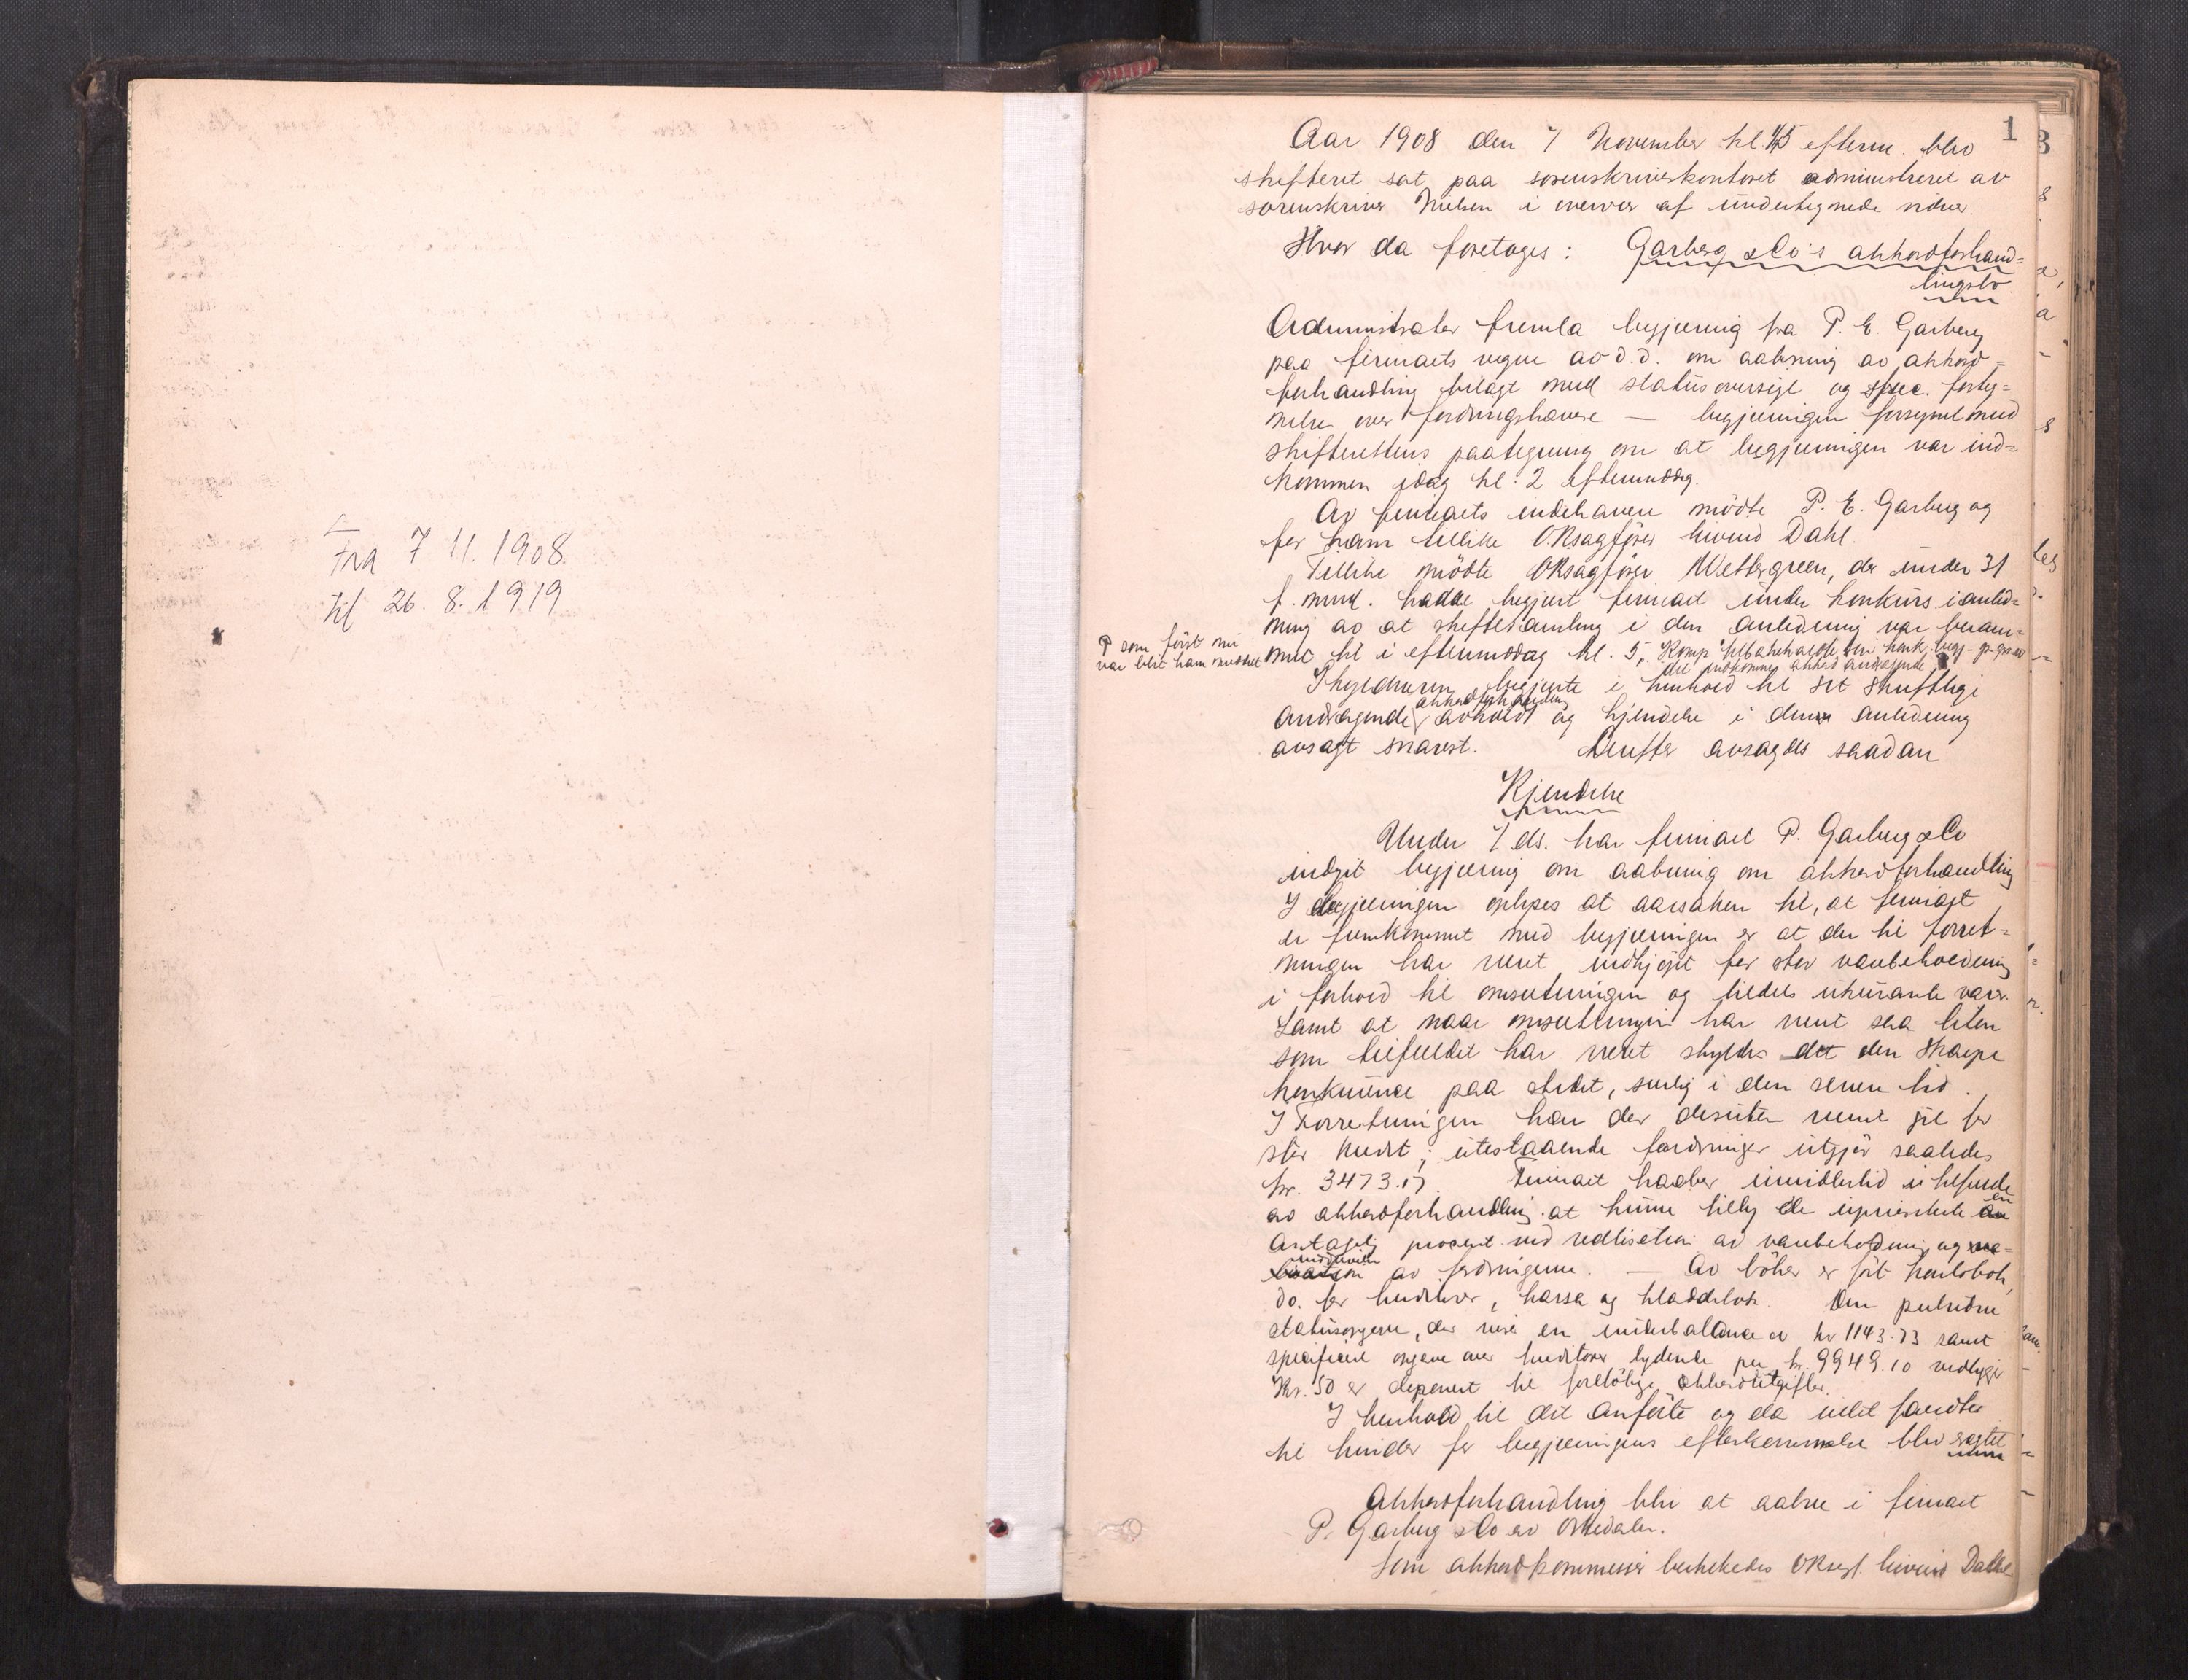 Fra 7 11. 1908.
til 26. 8. 1919
1
Aar 1908 den 7 November kl. 4/5 efterm. blev
skifteret sat paa sorenskriverkontoret administreret av
sorenskriver Nielsen i overvær af undertegnede vidner.
Hvor da foretoges: Garberg & Co's akkordforhand=
lingsbo
Administrator fremla begjæring fra P. E. Garberg
paa firmaets vegne av d.d. om aabning av akkord=
forhandling bilagt med statusoversigt og spec. forteg=
nelse over fordringshavere — begjæringen forsynet med
skifterettens paategning om at begjæringen var ind=
kommen idag kl. 2 eftermiddag.
Av firmaets indehavere mødte P. E. Garberg og
for ham tillike ORsagfører Eivind Dahl.
Tillike mødte ORsagfører Wettergreen, der under 31
f. mnd. hadde begjært firmaet under konkurs i anled=
ning av at skiftesamling i den anledning var beram=
met til i eftermiddag kl. 5,
P som først nu
var blit ham meddelt
Skyldneren begjærte i henhold til sit skriftlige
andragende akkordforhandling avholdt og kjendelse i denne anledning
avsagt snarest. Derefter avsagdes saadan
Kjendelse
Under 7 ds. har firmaet P. Garberg & Co
indgit begjæring om aabning om akkordforhandling
I begjæringen oplyses at aarsaken til, at firmaet
er fremkommet med begjæringen er at der til forret=
ningen har været indkjøpt for stor varebeholdning
i forhold til omsætningen og tildels ukurante varer.
Samt at naar omsætningen har været saa liten
som tilfældet har været skyldes det den skarpe
konkurrence paa stedet, særlig i den senere tid.
I Forretningen har der desuten været git for
stor kredit; utestaaende fordringer utgjør saaledes
kr. 3473.17. Firmaet haaber imidlertid i tilfælde
av akkordforhandling at kunne tilby de uprioriterte en
antagelig procent ved realisation av varebeholdning og
inddrivelse av fordringerne. — Av bøker er ført
do. for kreditorer, kassa og kladdebok. Den
statusopgjøre, der viser en underbalance av kr 1143.73 samt
specificert opgave over kreditorer lydende paa kr. 9949.10 vedlagt
Kr. 50 er deponert til foreløbige akkordutgifter.
I henhold til det anførte og da intet fandtes
til hinder for begjæringens efterkommelse blev sagtet
Akkordforhandling blir at aabne i firmaet
P. Garberg & Co av Orkedalen.
Som akkordkommissær beskikkedes ORsagf. Eivind Dahl